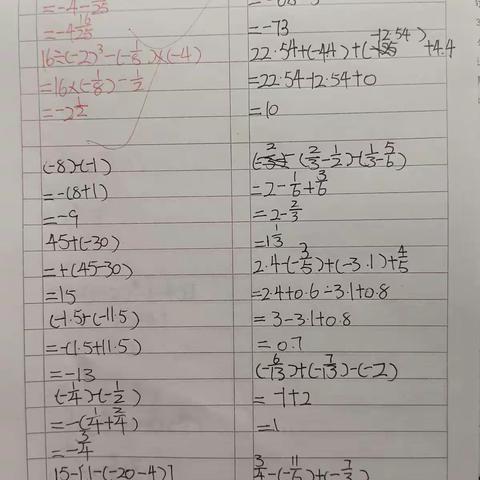 =-4-16/25
=-4 16/25
16÷(-2)³-(-1/8)×(-4)
=16×(-1/8)-1/2
=-2 1/2
(-8)+(-1)
=-(8+1)
=-9
45+(-30)
=+(45-30)
=15
(-1.5)+(-11.5)
=-(1.5+11.5)
=-13
(-1/4)+(-1/2)
=-(1/4+2/4)
=-3/4
15-[1-(-20-4)]
=-73
22.54+(-4.4)+(-12.54)+4.4
=22.54-12.54+0
=10
(2/3-1/2)-(1/3-5/6)
=2-1/6+3/6
=2-2/3
=1 1/3
2.4-(-3/5)+(-3.1)+4/5
=2.4+0.6-3.1+0.8
=3-3.1+0.8
=0.7
(-6/13)+(-7/13)-(-2)
=-1+2
=1
3/4-(-11/6)+(-7/3)